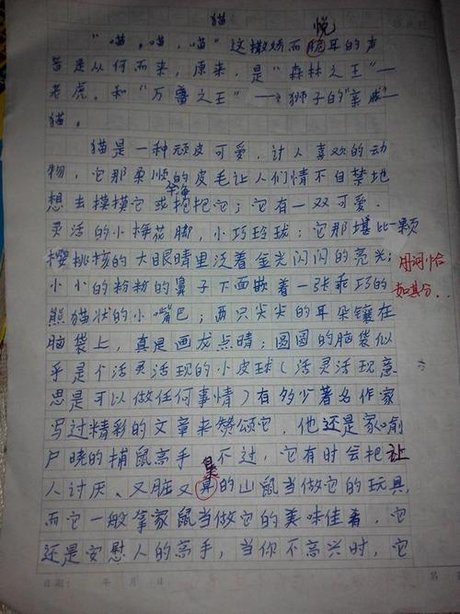 猫
悦
"喵，喵，喵"这撒娇而耳的声
音是从何而来，原来，是"森林之王"——
老虎、和"万兽之王"——狮子的"亲戚"
猫。
猫是一种顽皮可爱，讨人喜欢的动
物，它那柔顺的皮毛让人们情不自禁地
想去摸摸它或抱抱它；它有一双可爱.
灵活的小梅花脚，小巧玲珑；它那堪比一颗
樱桃核的大眼睛里泛着金光闪闪的亮光；
用词恰
小小的粉粉的鼻子下面嵌着一张乖巧的
如其分..
熊猫状的小嘴巴；两只尖尖的耳朵镶在
脑袋上，真是画龙点睛；圆圆的脑袋似
乎是个活灵活现的小皮球（活灵活现意
思是可以做任何事情）有多少著名作家
写过精彩的文章来赞颂它，他还是家喻
户晓的捕鼠高手 不过，它有时会把让
臭
人讨厌、又脏又的山鼠当做它的玩具，
而它一般拿家鼠当做它的美味佳肴，它
还是安慰人的高手，当你不高兴时，它
日期： 年 月 日